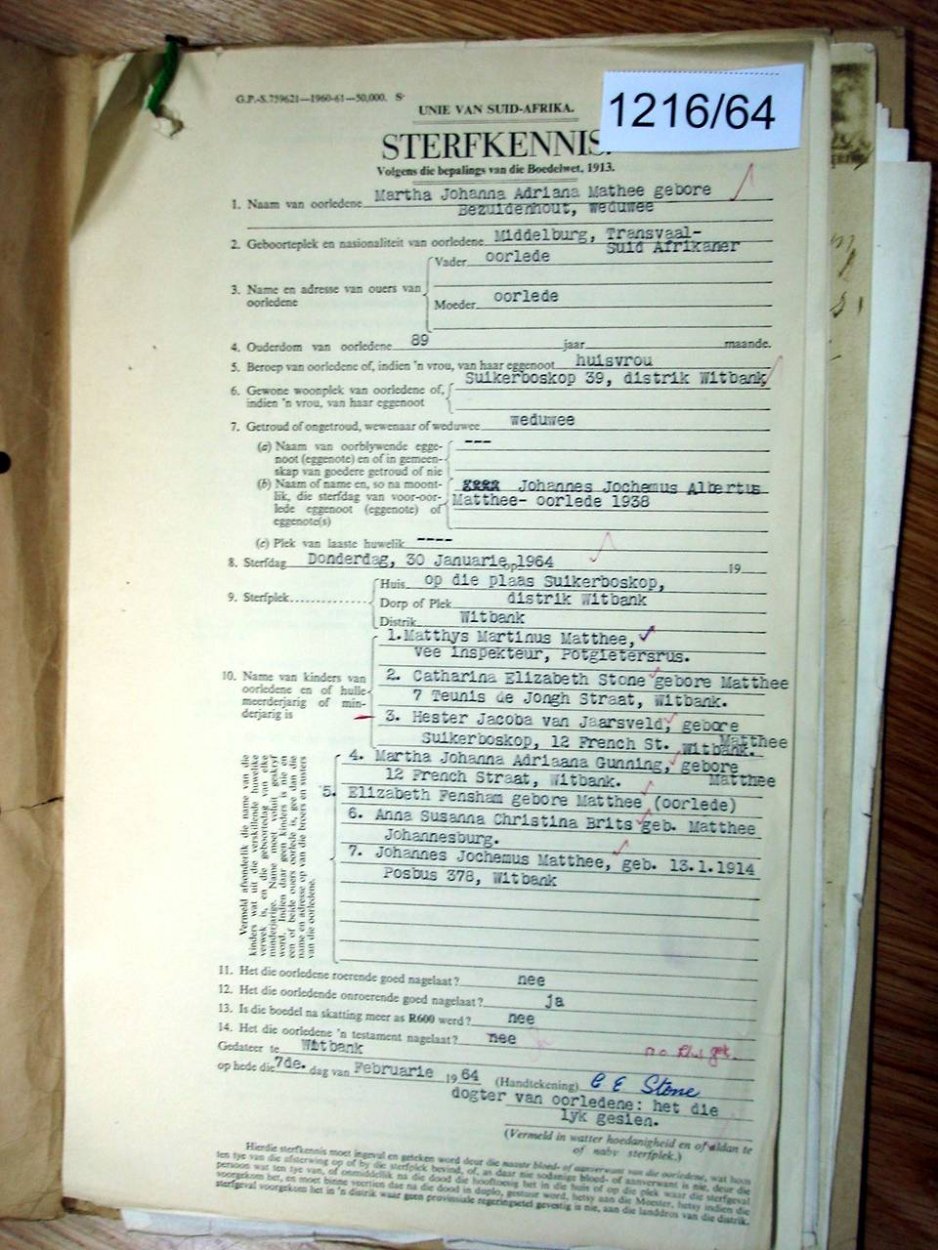 G.P.-S.759621—1960-61—50,000. S
1216/64
UNIE VAN SUID-AFRIKA.
STERFKENNIS.
Volgens die bepalings van die Boedelwet, 1913.
1. Naam van oorledene Martha Johanna Adriana Mathee gebore
Bezuidenhout, weduwee
2. Geboorteplek en nasionaliteit van oorledene Middelburg, Transvaal-
Suid Afrikaner
3. Name en adresse van ouers van oorledene
Vader oorlede
Moeder oorlede
4. Ouderdom van oorledene 89 jaar maande.
5. Beroep van oorledene of, indien 'n vrou, van haar eggenoot huisvrou
6. Gewone woonplek van oorledene of, Suikerboskop 39, distrik Witbank
indien 'n vrou, van haar eggenoot
7. Getroud of ongetroud, wewenaar of weduwee weduwee
(a) Naam van oorblywende egge- ---
noot (eggenote) en of in gemeen-
skap van goedere getroud of nie
(b) Naam of name en, so na moont- Johannes Jochemus Albertus
lik, die sterfdag van voor-oor- Matthee- oorlede 1938
lede eggenoot (eggenote) of
eggenote(s)
(c) Plek van laaste huwelik ----
8. Sterfdag Donderdag, 30 Januarie op 1964 19
9. Sterfplek
Huis op die plaas Suikerboskop,
Dorp of Plek distrik Witbank
Distrik Witbank
10. Name van kinders van
oorledene en of hulle
meerderjarig of min-
derjarig is
1. Matthys Martinus Matthee,
Vee inspekteur, Potgietersrus.
2. Catharina Elizabeth Stone gebore Matthee
7 Teunis de Jongh Straat, Witbank.
3. Hester Jacoba van Jaarsveld, gebore
Matthee
Suikerboskop, 12 French St. Witbank.
4. Martha Johanna Adriaana Gunning, gebore
12 French Straat, Witbank. Matthee
5. Elizabeth Fensham gebore Matthee (oorlede)
6. Anna Susanna Christina Brits geb. Matthee
Johannesburg.
7. Johannes Jochemus Matthee, geb. 13.1.1914
Posbus 378, Witbank
Vermeld afsonderlik die name van die
kinders wat uit die verskillende huwelike
verwek is, en die geboortedag van elke
minderjarige. Name moet voluit geskryf
word. Indien daar geen kinders is nie en
een of beide ouers oorlede is, gee dan die
name en adresse op van die broers en susters
van die oorledene.
11. Het die oorledene roerende goed nagelaat? nee
12. Het die oorledende onroerende goed nagelaat? ja
13. Is die boedel na skatting meer as R600 werd? nee
14. Het die oorledene 'n testament nagelaat? nee
Gedateer te Witbank
op hede die 7de. dag van Februarie 1964 (Handtekening) C E Stone
dogter van oorledene: het die
lyk gesien.
(Vermeld in watter hoedanigheid en of aldan te
of naby sterfplek.)
Hierdie sterfkennis moet ingevul en geteken word deur die naaste bloed- of aanverwant van die oorledene, wat hom
ten tye van die afsterwing op of by die sterfplek bevind, of, as daar nie sodanige bloed- of aanverwant is nie, deur die
persoon wat ten tye van, of onmiddelik na die dood die hooftoesig het in die huis of op die plek waar die sterfgeval
voorgekom het, en moet binne veertien dae na die dood in duplo, gestuur word, hetsy aan die Meester, hetsy indien die
sterfgeval voorgekom het in 'n distrik waar geen provinsiale regeringsetel gevestig is nie, aan die landdros van die distrik.